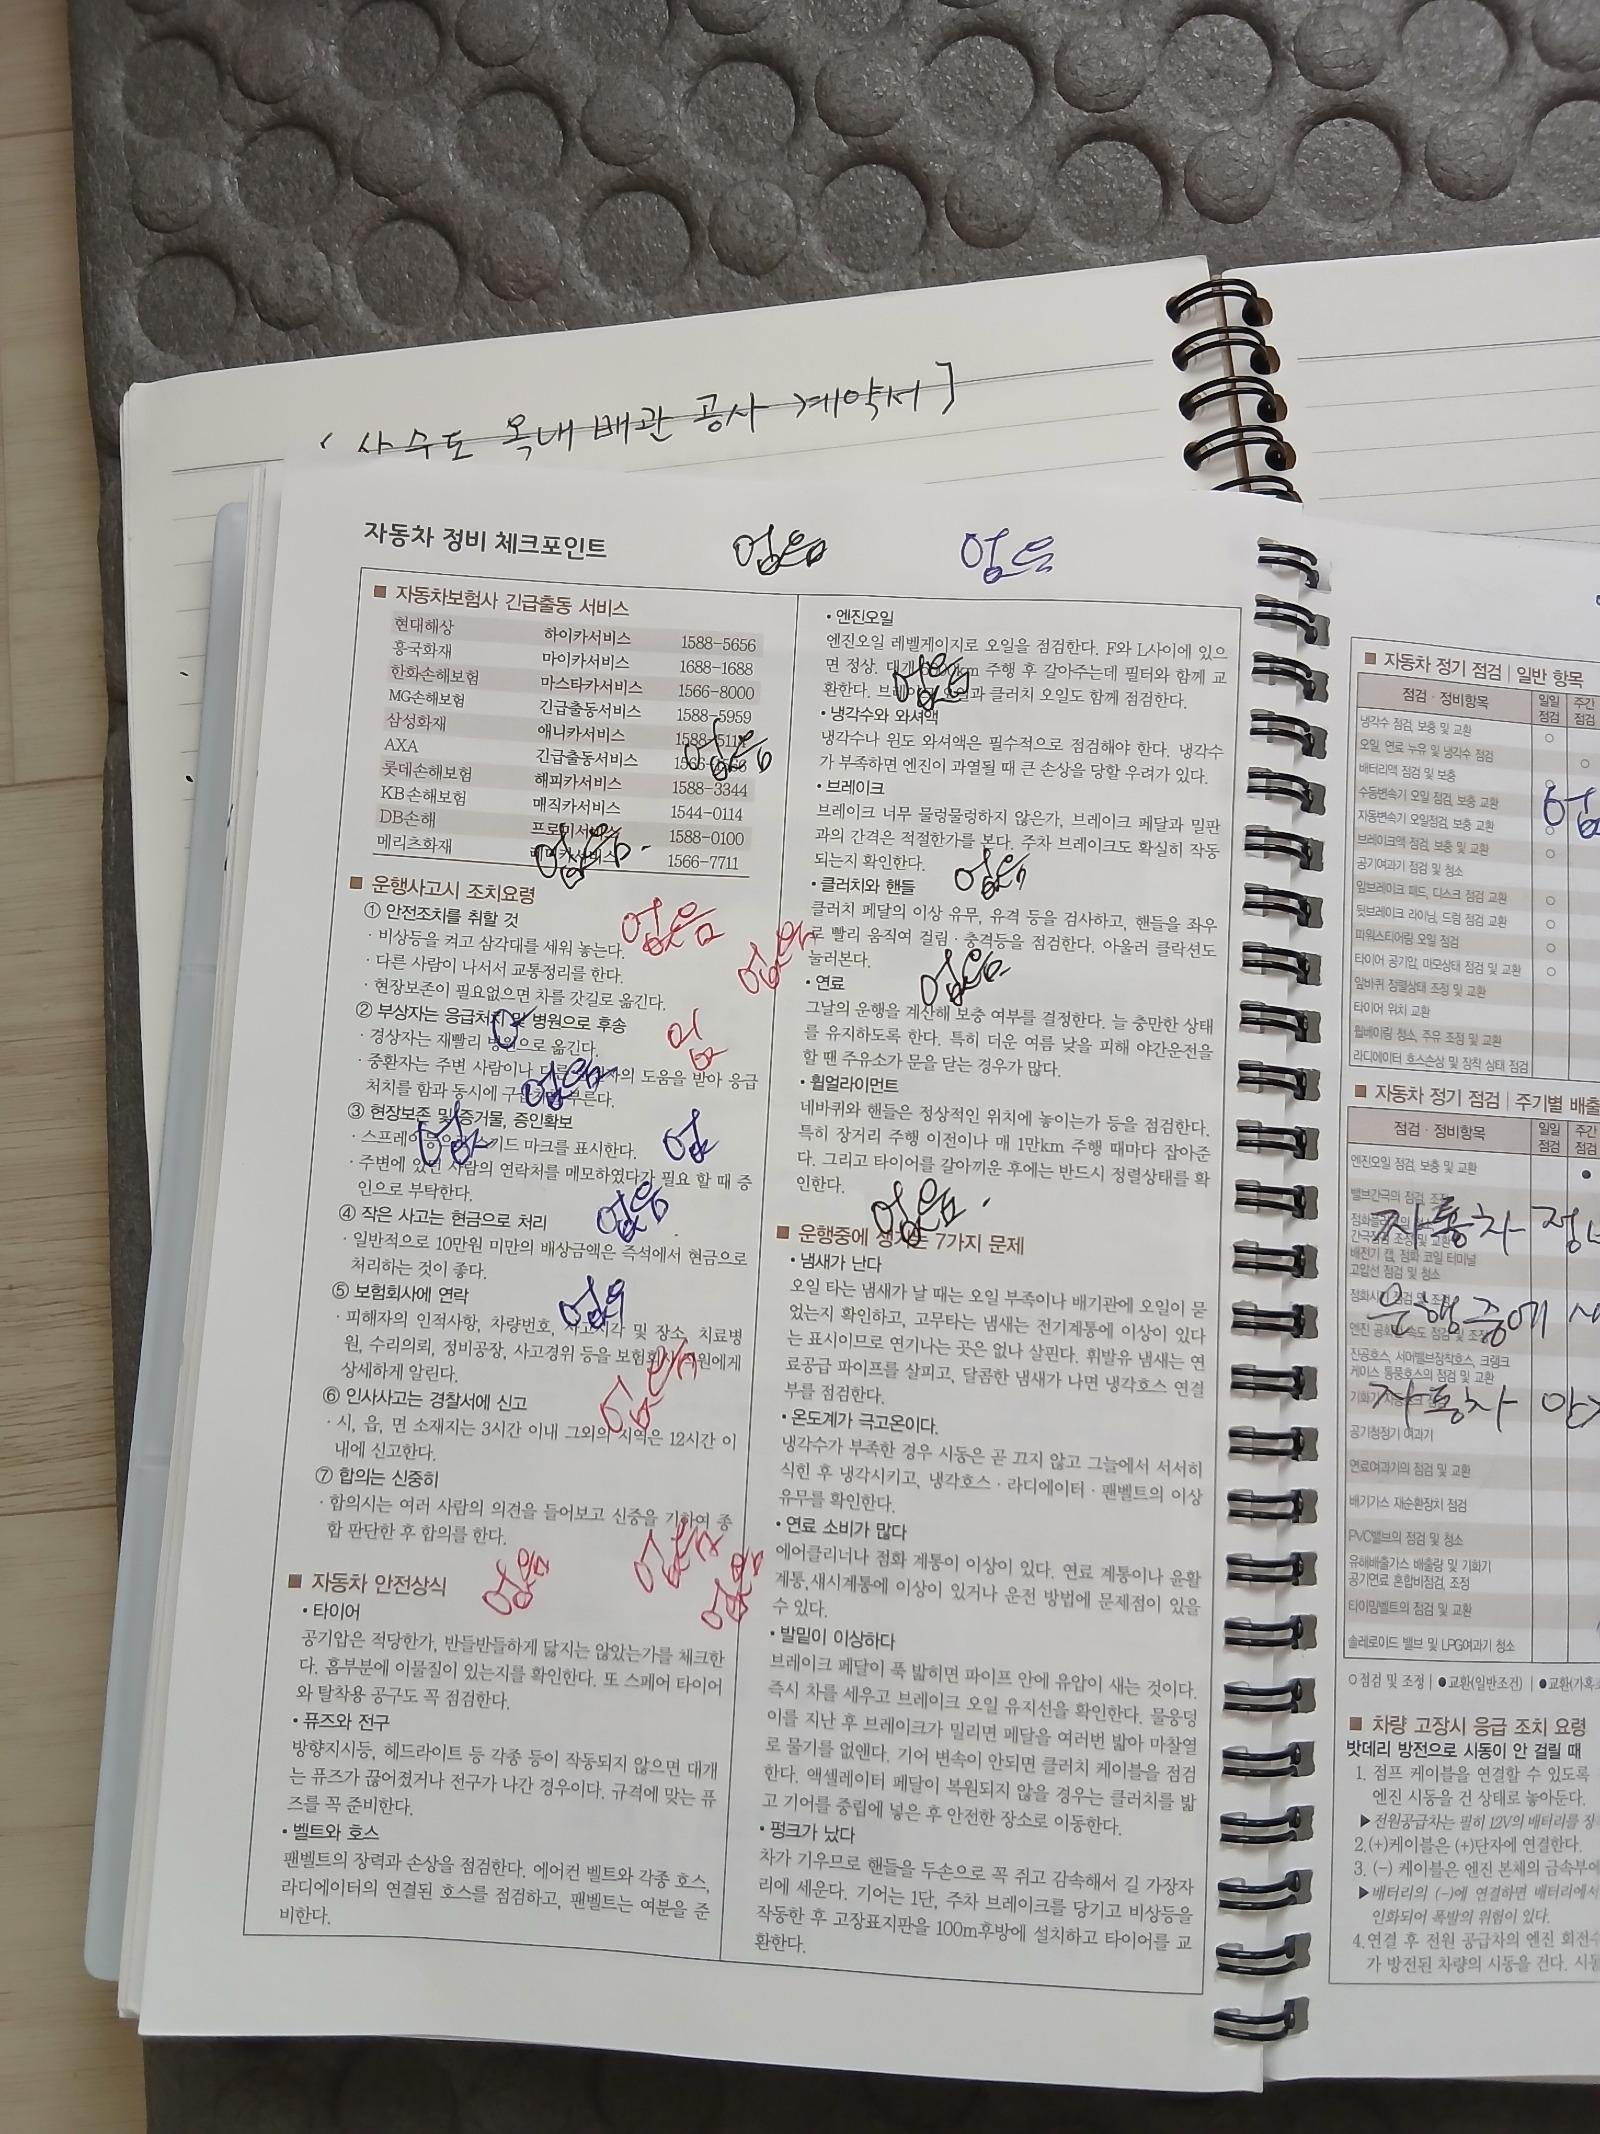 사수도 옥내 배관 공사 계약서]
자동차 정비 체크포인트
없음
없음
■ 자동차보험사 긴급출동 서비스
현대해상 하이카서비스 1588-5656
흥국화재 마이카서비스 1688-1688
한화손해보험 마스타카서비스 1566-8000
MG손해보험 긴급출동서비스 1588-5959
삼성화재 애니카서비스 1588-5114
AXA 긴급출동서비스
롯데손해보험 해피카서비스 1588-3344
KB손해보험 매직카서비스 1544-0114
DB손해 1588-0100
메리츠화재 1566-7711
없음
없음.
■ 운행사고시 조치요령
① 안전조치를 취할 것
· 비상등을 켜고 삼각대를 세워 놓는다.
· 다른 사람이 나서서 교통정리를 한다.
· 현장보존이 필요없으면 차를 갓길로 옮긴다.
없음
② 부상자는 응급처치 및 병원으로 후송
· 경상자는 재빨리 병원으로 옮긴다.
· 중환자는 주변 사람이나 다른 의 도움을 받아 응급
처치를 함과 동시에 부른다.
③ 현장보존 및 증거물, 증인확보
· 스프레이 등으로 스키드 마크를 표시한다.
· 주변에 있던 사람의 연락처를 메모하였다가 필요 할 때 증
인으로 부탁한다.
없음
④ 작은 사고는 현금으로 처리
· 일반적으로 10만원 미만의 배상금액은 즉석에서 현금으로
처리하는 것이 좋다.
⑤ 보험회사에 연락
· 피해자의 인적사항, 차량번호, 사고시각 및 장소, 치료병
원, 수리의뢰, 정비공장, 사고경위 등을 보험회사 직원에게
상세하게 알린다.
⑥ 인사사고는 경찰서에 신고
· 시, 읍, 면 소재지는 3시간 이내 그외의 지역은 12시간 이
내에 신고한다.
⑦ 합의는 신중히
· 합의시는 여러 사람의 의견을 들어보고 신중을 기하여 종
합 판단한 후 합의를 한다.
■ 자동차 안전상식
• 타이어
공기압은 적당한가, 반들반들하게 닳지는 않았는가를 체크한
다. 홈부분에 이물질이 있는지를 확인한다. 또 스페어 타이어
와 탈착용 공구도 꼭 점검한다.
• 퓨즈와 전구
방향지시등, 헤드라이트 등 각종 등이 작동되지 않으면 대개
는 퓨즈가 끊어졌거나 전구가 나간 경우이다. 규격에 맞는 퓨
즈를 꼭 준비한다.
• 벨트와 호스
팬벨트의 장력과 손상을 점검한다. 에어컨 벨트와 각종 호스,
라디에이터의 연결된 호스를 점검하고, 팬벨트는 여분을 준
비한다.
• 엔진오일
엔진오일 레벨게이지로 오일을 점검한다. F와 L사이에 있으
면 정상. 대개 주행 후 갈아주는데 필터와 함께 교
환한다. 브레이크 오일과 클러치 오일도 함께 점검한다.
없음
• 냉각수와 와셔액
냉각수나 윈도 와셔액은 필수적으로 점검해야 한다. 냉각수
가 부족하면 엔진이 과열될 때 큰 손상을 당할 우려가 있다.
• 브레이크
브레이크 너무 물렁물렁하지 않은가, 브레이크 페달과 밑판
과의 간격은 적절한가를 본다. 주차 브레이크도 확실히 작동
되는지 확인한다.
• 클러치와 핸들
클러치 페달의 이상 유무, 유격 등을 검사하고, 핸들을 좌우
로 빨리 움직여 걸림 · 충격등을 점검한다. 아울러 클락션도
눌러본다.
• 연료
그날의 운행을 계산해 보충 여부를 결정한다. 늘 충만한 상태
를 유지하도록 한다. 특히 더운 여름 낮을 피해 야간운전을
할 땐 주유소가 문을 닫는 경우가 많다.
• 휠얼라이먼트
네바퀴와 핸들은 정상적인 위치에 놓이는가 등을 점검한다.
특히 장거리 주행 이전이나 매 1만km 주행 때마다 잡아준
다. 그리고 타이어를 갈아끼운 후에는 반드시 정렬상태를 확
인한다.
없음.
■ 운행중에 생기는 7가지 문제
• 냄새가 난다
오일 타는 냄새가 날 때는 오일 부족이나 배기관에 오일이 묻
었는지 확인하고, 고무타는 냄새는 전기계통에 이상이 있다
는 표시이므로 연기나는 곳은 없나 살핀다. 휘발유 냄새는 연
료공급 파이프를 살피고, 달콤한 냄새가 나면 냉각호스 연결
부를 점검한다.
• 온도계가 극고온이다.
냉각수가 부족한 경우 시동은 곧 끄지 않고 그늘에서 서서히
식힌 후 냉각시키고, 냉각호스 · 라디에이터 · 팬벨트의 이상
유무를 확인한다.
• 연료 소비가 많다
에어클리너나 점화 계통이 이상이 있다. 연료 계통이나 윤활
계통,새시계통에 이상이 있거나 운전 방법에 문제점이 있을
수 있다.
• 발밑이 이상하다
브레이크 페달이 푹 밟히면 파이프 안에 유압이 새는 것이다.
즉시 차를 세우고 브레이크 오일 유지선을 확인한다. 물웅덩
이를 지난 후 브레이크가 밀리면 페달을 여러번 밟아 마찰열
로 물기를 없앤다. 기어 변속이 안되면 클러치 케이블을 점검
한다. 액셀레이터 페달이 복원되지 않을 경우는 클러치를 밟
고 기어를 중립에 넣은 후 안전한 장소로 이동한다.
• 펑크가 났다
차가 기우므로 핸들을 두손으로 꼭 쥐고 감속해서 길 가장자
리에 세운다. 기어는 1단, 주차 브레이크를 당기고 비상등을
작동한 후 고장표지판을 100m후방에 설치하고 타이어를 교
환한다.
■ 자동차 정기 점검 | 일반 항목
점검 · 정비항목 일일점검 주간점검
냉각수 점검, 보충 및 교환 ○
오일, 연료 누유 및 냉각수 점검 ○
배터리액 점검 및 보충 ○
수동변속기 오일 점검, 보충 교환
자동변속기 오일점검, 보충 교환 ○
브레이크액 점검, 보충 및 교환 ○
공기여과기 점검 및 청소
앞브레이크 패드, 디스크 점검 교환 ○
뒷브레이크 라이닝, 드럼 점검 교환 ○
파워스티어링 오일 점검 ○
타이어 공기압, 마모상태 점검 및 교환 ○
앞바퀴 정렬상태 조정 및 교환
타이어 위치 교환
휠베어링 청소, 주유 조정 및 교환
라디에이터 호스손상 및 장착 상태 점검
■ 자동차 정기 점검 | 주기별 배출
점검 · 정비항목 일일점검 주간점검
엔진오일 점검, 보충 및 교환 ●
밸브간극의 점검, 조정
자동차 정
배전기 캡, 점화 코일 터미널
고압선 점검 및 청소
운행중에
진공호스, 서머밸브장착호스, 크랭크
케이스 통풍호스의 점검 및 교환
자동차 안
공기청정기 여과기
연료여과기의 점검 및 교환
배기가스 재순환장치 점검
PVC밸브의 점검 및 청소
유해배출가스 배출량 및 기화기
공기연료 혼합비점검, 조정
타이밍벨트의 점검 및 교환
솔레로이드 밸브 및 LPG여과기 청소
○점검 및 조정 | ●교환(일반조건) | ●교환(가혹
■ 차량 고장시 응급 조치 요령
밧데리 방전으로 시동이 안 걸릴 때
1. 점프 케이블을 연결할 수 있도록
엔진 시동을 건 상태로 놓아둔다.
▶전원공급차는 필히 12V의 배터리를
2.(+)케이블은 (+)단자에 연결한다.
3. (−) 케이블은 엔진 본체의 금속부에
▶배터리의 (−)에 연결하면 배터리에서
인화되어 폭발의 위험이 있다.
4.연결 후 전원 공급차의 엔진 회전수
가 방전된 차량의 시동을 건다.